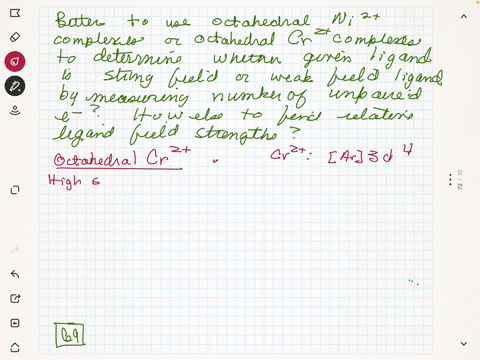 Better to use octahedral Ni 2+
complexes or octahedral Cr 2+ complexes
to determine whether given ligand
is strong field or weak field ligand
by measuring number of unpaired
e- ? How else to find relative
ligand field strengths ?
Octahedral Cr 2+ . Cr 2+ : [Ar] 3d 4
High s
72 / 72
69